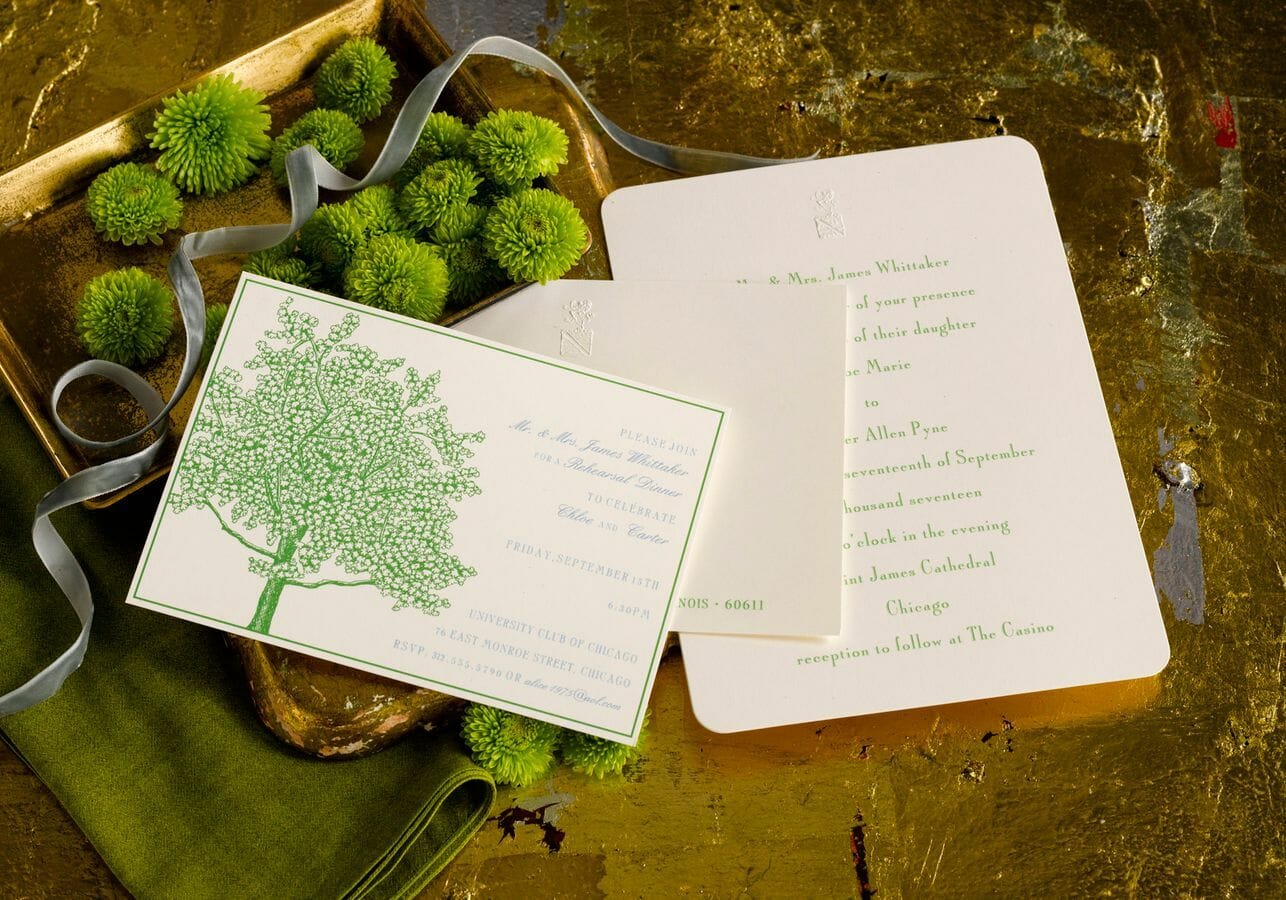 PLEASE JOIN
Mr. & Mrs. James Whittaker
FOR A Rehearsal Dinner
TO CELEBRATE
Chloe AND Carter
FRIDAY, SEPTEMBER 15TH
6:30PM
UNIVERSITY CLUB OF CHICAGO
76 EAST MONROE STREET, CHICAGO
RSVP: 312.555.5790 OR alice1975@aol.com
NOIS • 60611
& Mrs. James Whittaker
of your presence
of their daughter
Marie
to
Allen Pyne
seventeenth of September
thousand seventeen
o'clock in the evening
int James Cathedral
Chicago
reception to follow at The Casino